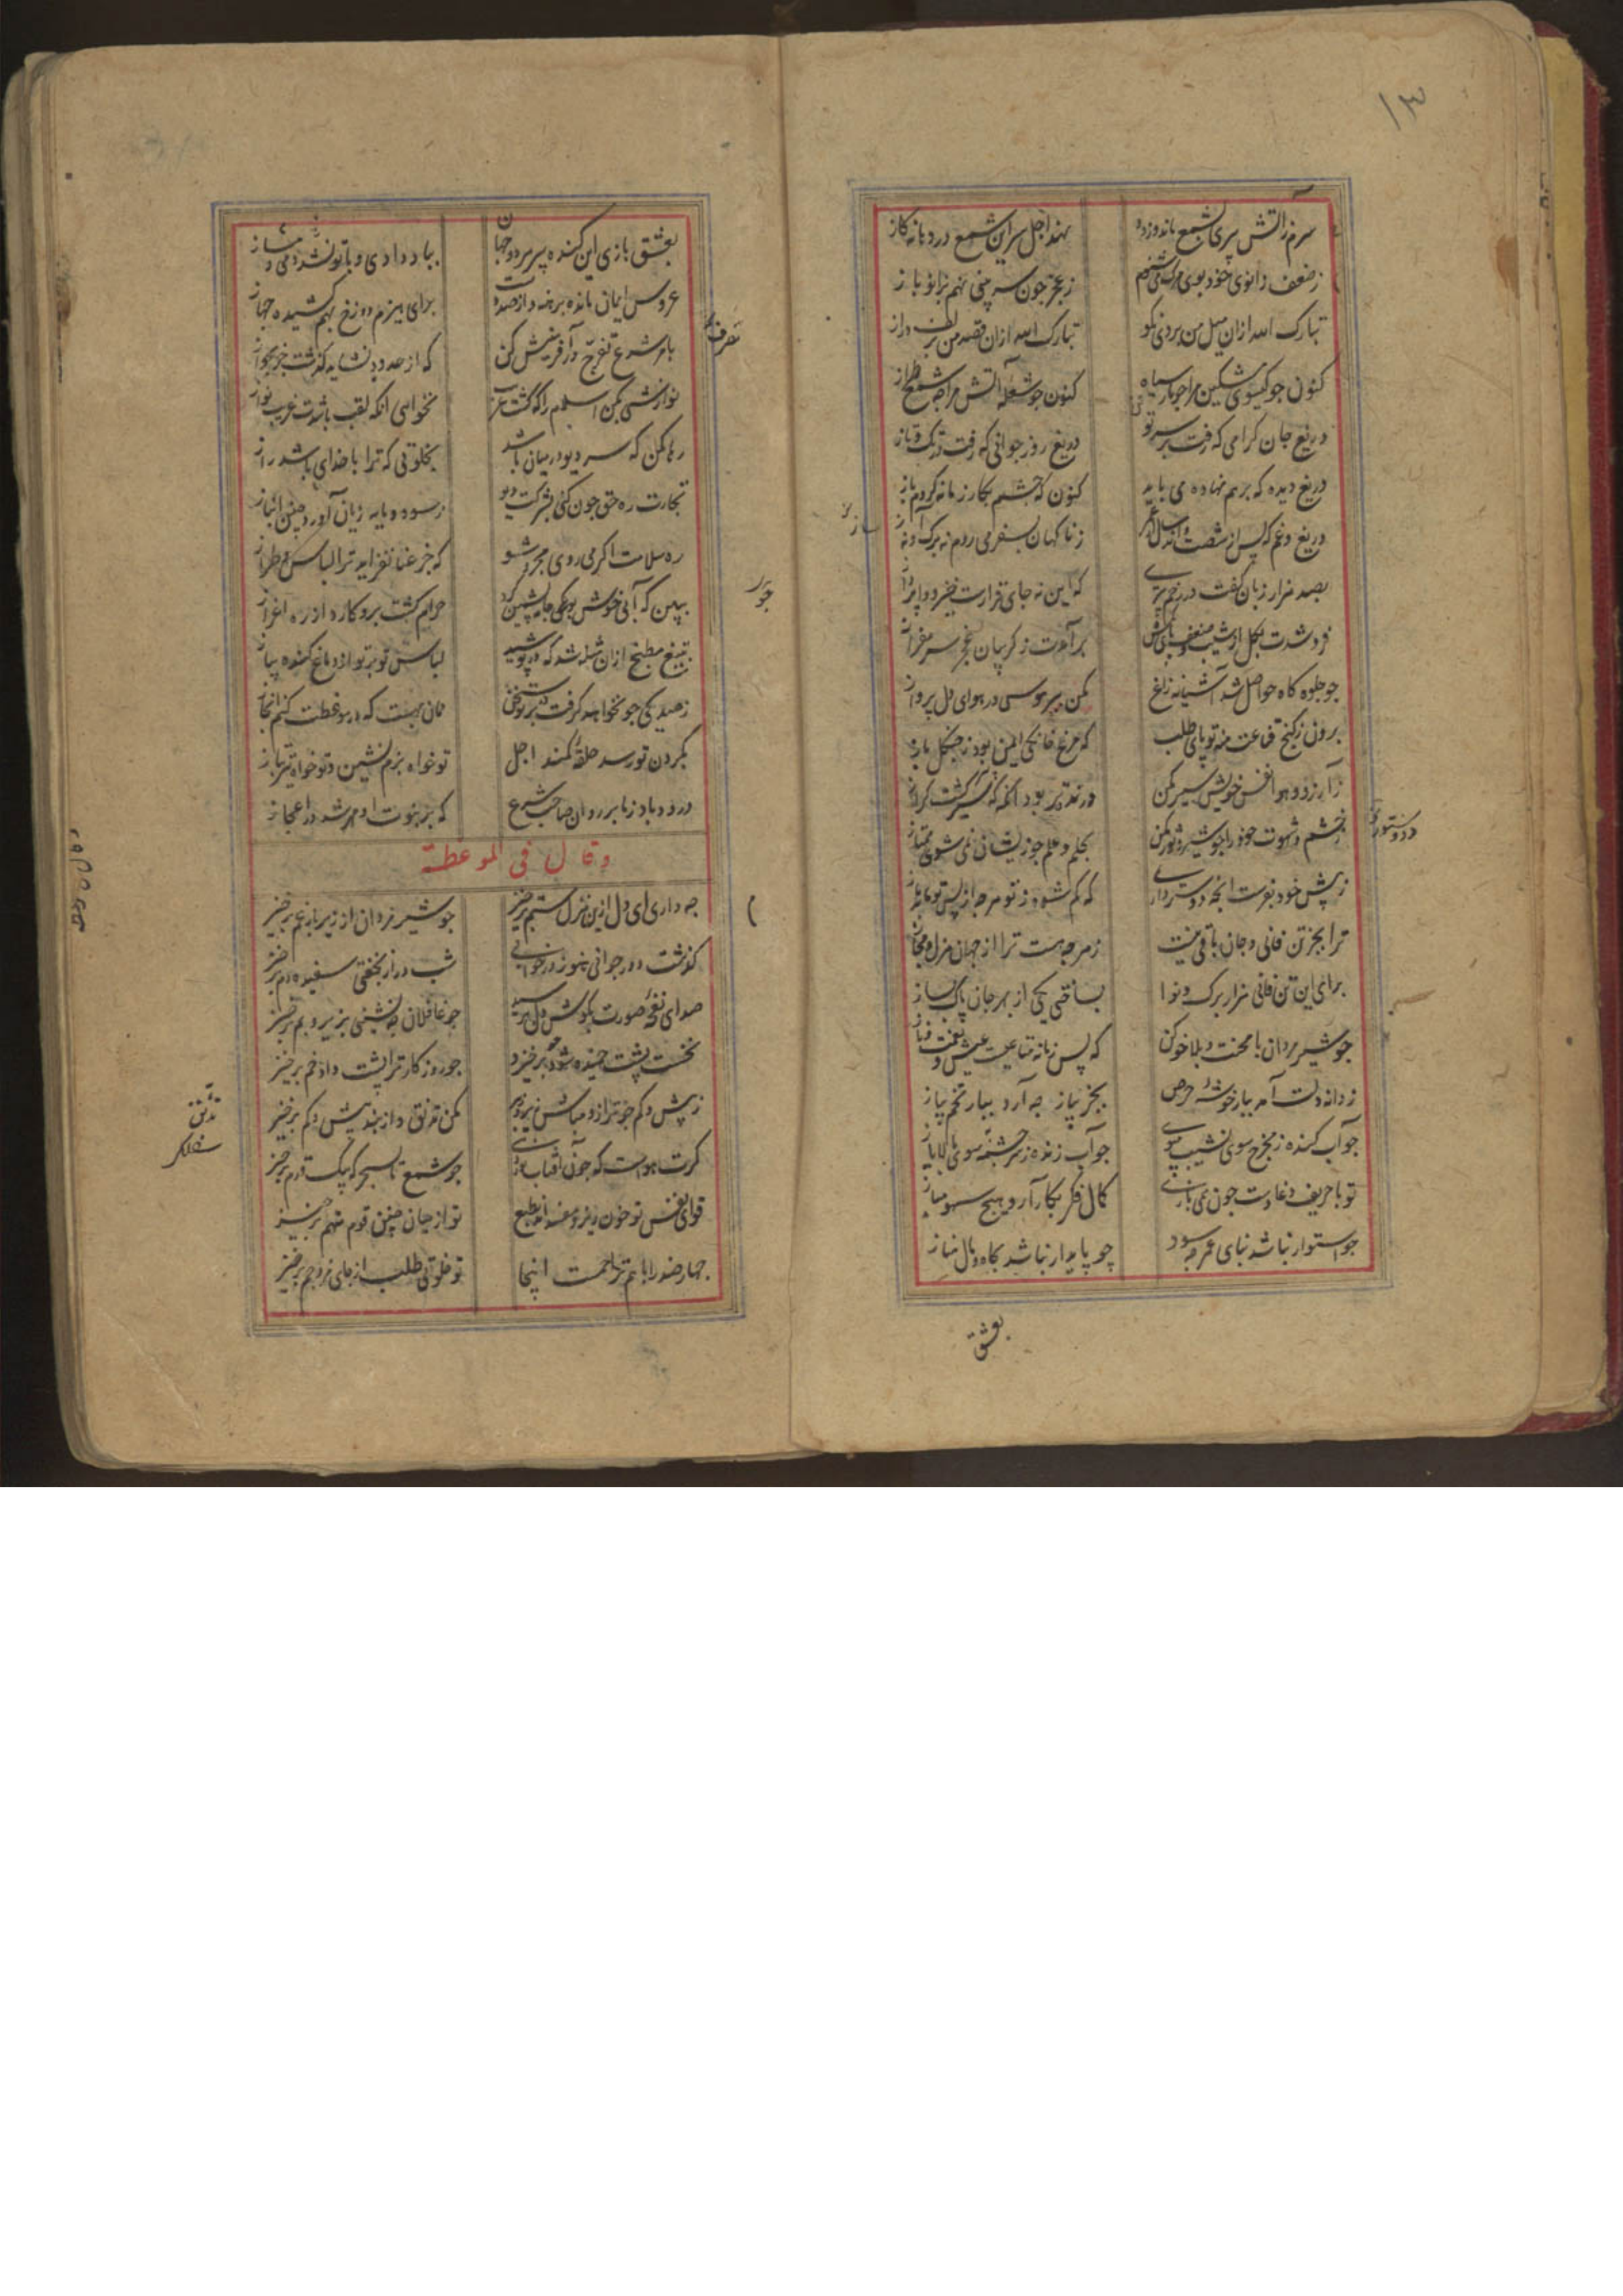 ۱۳
سرم ز آتش پیری بشمع ماند و زود
نهد اجل سر این شمع در دهانه کاز
ز ضعف زانوی خود بوی مرک می شنوم
ز عجز چون سر بینی نهم بزانو باز
تبارک الله ازان میل من بروی نکو
تبارک الله ازان قصد من بزلف دراز
کنون جو کیسوی مشکین مرا جو مار سیاه
کنون جو شعله آتش مرا جه شمع طراز
دریغ جان کرامی که رفت بر سر تو
دریغ روز جوانی که رفت در تک و تاز
دریغ دیده که برهم نهاده می باید
کنون که جشم بکار زمانه کردم باز
دریغ و غم که پس از شصت و اند سال
ز ناکهان بسفر می روم نه برک و نه ساز
بصد هزار زبان کفت در رخم پیری
که این نه جای قرارست خیز و وا پرداز
فرو شدت بکل از شیب ضعف پای
برآمدت ز کریبان عجز سر
جو جلوه کاه حواصل شد آشیانه زاغ
مکن بپر هوس در هوای دل پرواز
برون ز کنج قناعت منه تو پای طلب
که مرغ خانکی ایمن بود ز جنکل باز
ز آرزو و هوا نفس خویش سیر مکن
درنده تر بود انکه که سیر کشت کراز
ز خشم و شهوت خود را جو شیر و ثور مکن
بحلم و علم جو زیشان نمی شوی ممتاز
ز پیش خود بفرست انچه دوستر داری
که کم شود ز تو هرجه از پس تو ماند باز
ترا بجز تن فانی و جان باقی نیست
ز هرجه هست ترا از جهان هزل و مجاز
برای این تن فانی هزار برک و نوا
بساختی یکی از بهر جان پاک بساز
جو شیر مردان با محنت و بلا خو کن
که پس زنانه متاعیست عیش و نعمت و ناز
ز دانه دلت آمد بار خوشه حرص
بجز پیاز جه آرد ببار تخم پیاز
جو آب کنده ز مخرج سوی نشیب مپوی
جو آب زنده ز سرچشمه سوی بالا یاز
تو با حریف دغادست چون همی بازی
کمال فکر بکار آر و هیچ سهو مباز
جو استوار نباشد بنای عمر جه سود
چو پایدار نباشد بجاه و مال مناز
بعشق
بعشق بازی این کنده پیر مرد و جهان
بباد دادی و با تو نشد دمی دمساز
عروس ایمان مانده برهنه و از صد دست
برای هیزم دوزخ بهم کشیده جهاز
بامر شرع تفرج در آفرینش کن
که از حدود نشاید گذشت جز بجواز
نوازشی بکن اسلام را که کشت غریب
نخواهی انکه لقب باشدت غریب نواز
رها مکن که سر دیو در میان باشد
بخلوتی که ترا با خدای باشد راز
تجارت ره حق جون کنی بشرکت دیو
ز سود و مایه زیان آورد جنین انباز
ره سلامت اکر می روی مجرد شو
که جز عنا نفزاید ترا لباس و طراز
ببین که
حرام کشت برو کارد از ره اعزاز
بتیغ مطبخ ازان مثله شد که در پوشید
لباس تو بر تو از دماغ کنده پیاز
ز صد یکی جو نخواهد کرفت در تو سخن
همان بهست که در موعظت کنم ایجاز
بکردن تو رسد حلقه کمند اجل
تو خواه بزم نشین و تو خواه تیر بباز
درود باد ز ما بر روان صاحب شرع
که بر نبوت او مهر شد در اعجاز
وقال فی الموعظة
جه داری ای دل ازین منزل ستم برخیز
جو شیر مردان از زیر بار غم برخیز
کذشت دور جوانی هنوز در خوابی
شب دراز بخفتی سفیده دم برخیز
صدای نغمه صورت بکوش دل نرسید
جو غافلان جه نشینی بزیر و بم برخیز
نخست پشت خمیده شود جو برخیزد
جو روزکار ترا پشت داد خم برخیز
ز پیش و کم جو ترازو مباش زیر و زبر
مکن تدنق و از بند پیش و کم برخیز
کرت هواست که جون آفتاب
جو شمع تا بسحرکه بیک قدم برخیز
قوای نفس تو خون ریز و مفسد اند بطبع
تو از میان جنین قوم متهم برخیز
جهار ضد را با هم تزاحمست اینجا
تو خلوتی طلب از جای مزدحم برخیز